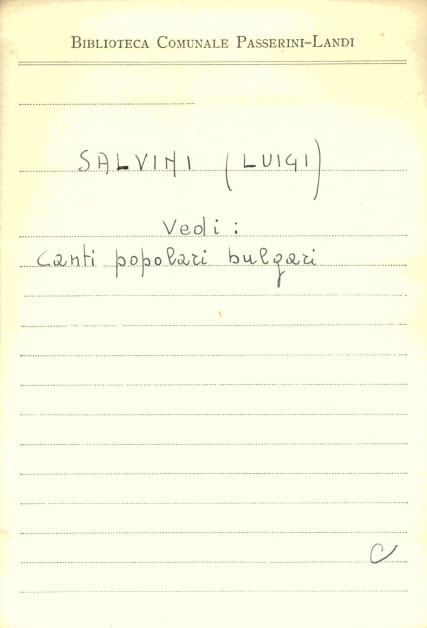 BIBLIOTECA COMUNALE PASSERINI-LANDI
SALVINI (LUIGI)
Vedi:
Canti popolari bulgari
C